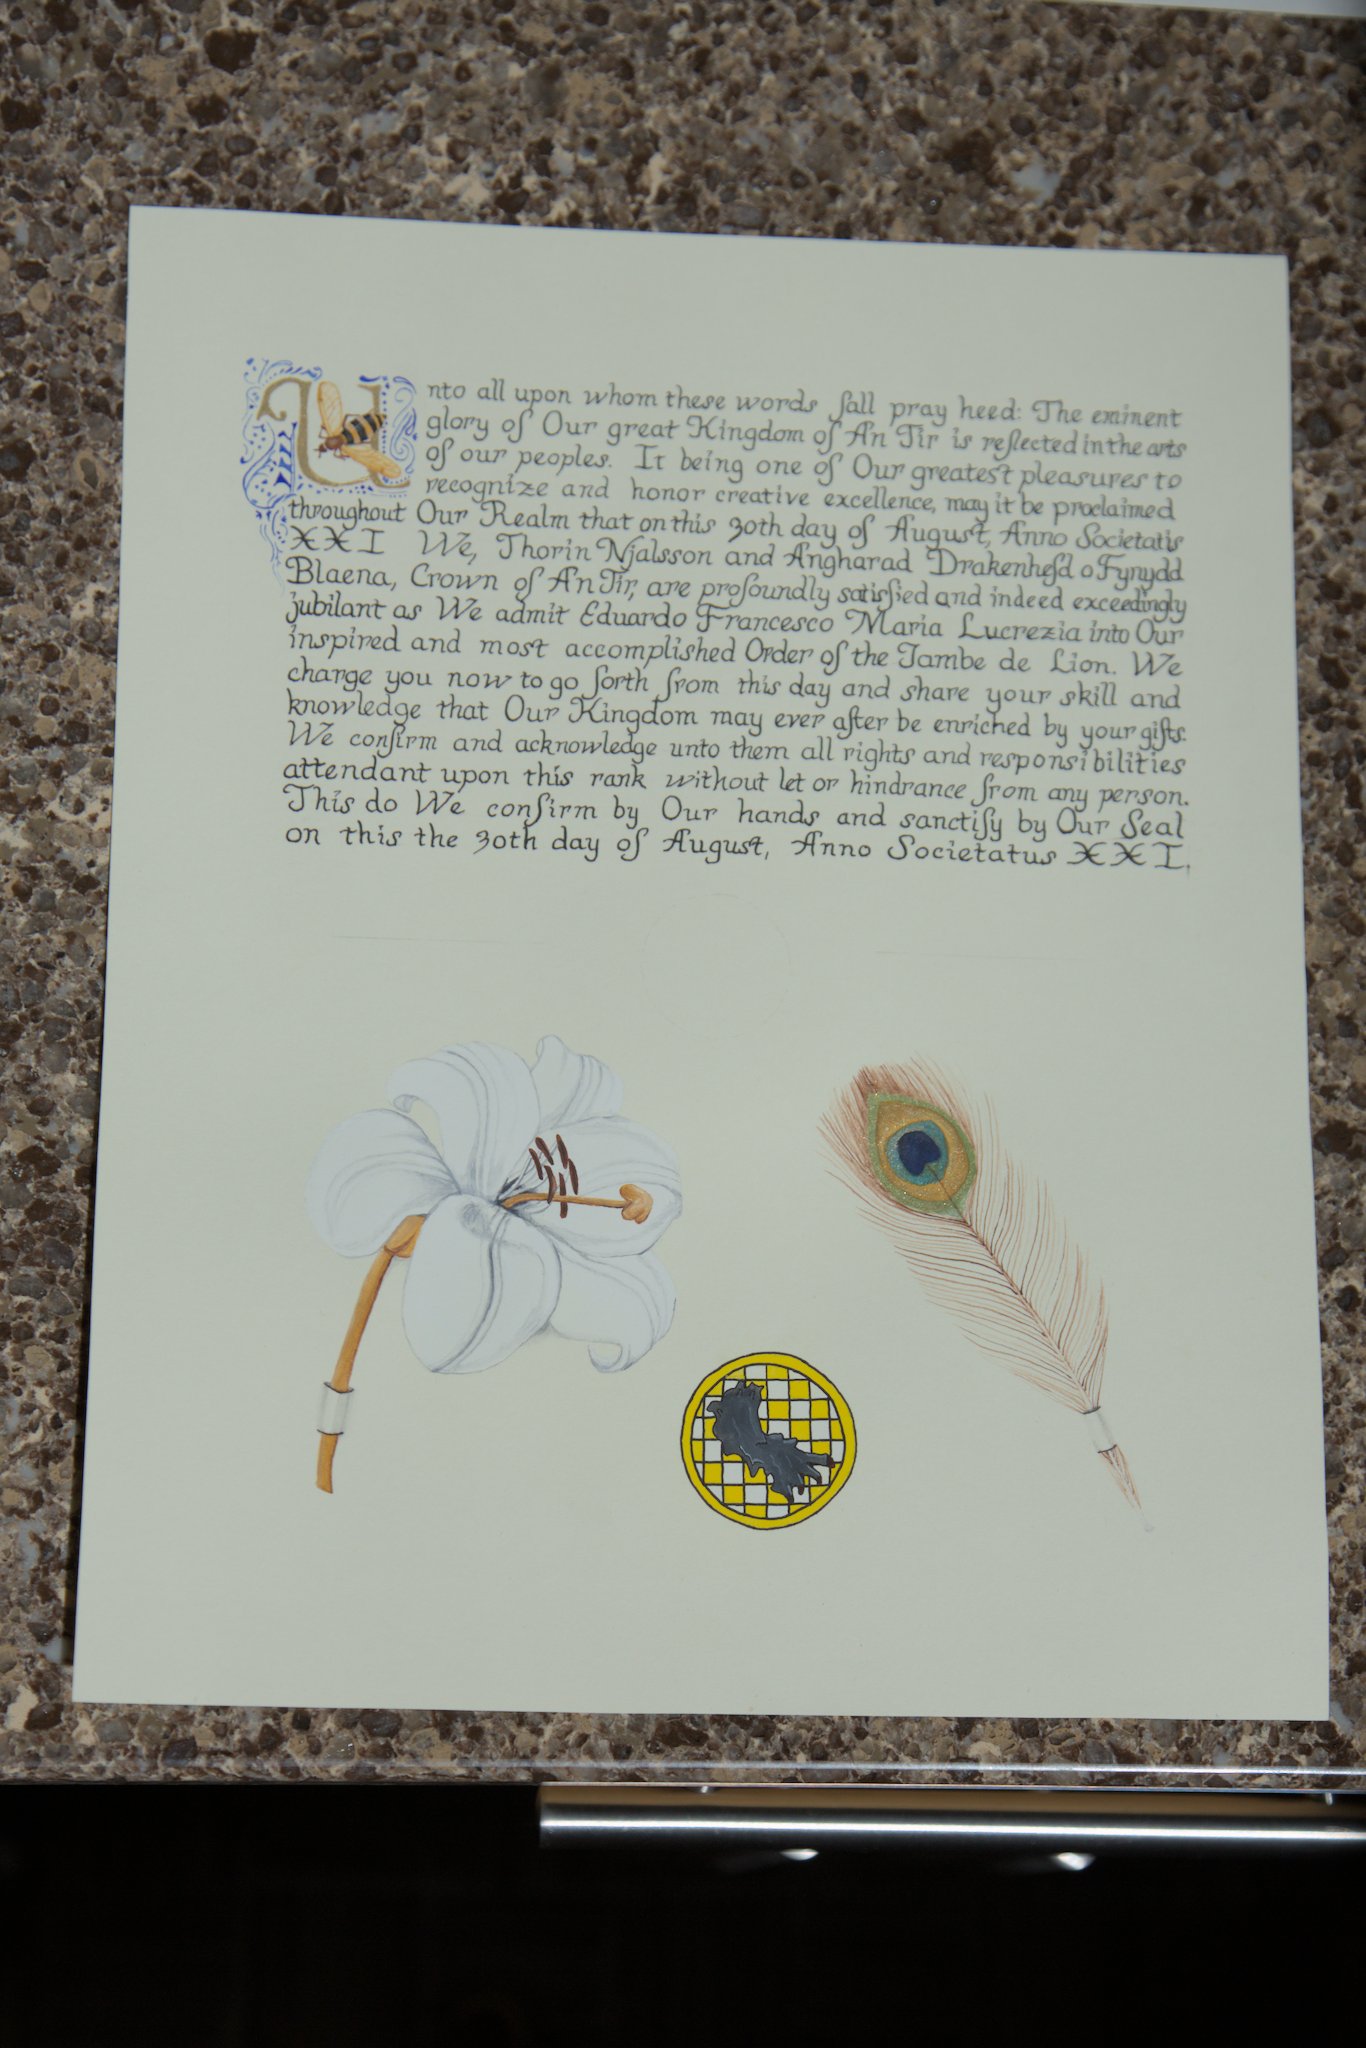 Unto all upon whom these words fall pray heed: The eminent
glory of Our great Kingdom of An Tir is reflected in the arts
of our peoples. It being one of Our greatest pleasures to
recognize and honor creative excellence, may it be proclaimed
throughout Our Realm that on this 30th day of August, Anno Societatis
XXI We, Thorin Njalsson and Angharad Drakenhefd o Fynydd
Blaena, Crown of An Tir, are profoundly satisfied and indeed exceedingly
jubilant as We admit Eduardo Francesco Maria Lucrezia into Our
inspired and most accomplished Order of the Jambe de Lion. We
charge you now to go forth from this day and share your skill and
knowledge that Our Kingdom may ever after be enriched by your gifts.
We confirm and acknowledge unto them all rights and responsibilities
attendant upon this rank without let or hindrance from any person.
This do We confirm by Our hands and sanctify by Our Seal
on this the 30th day of August, Anno Societatus XXI.